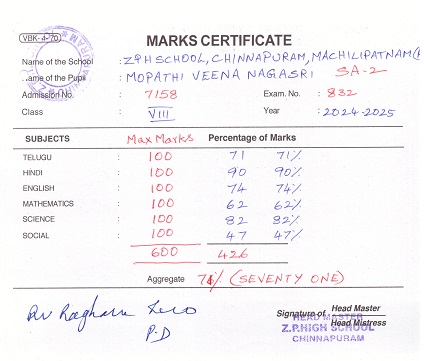 VBK-4-70
MARKS CERTIFICATE
Name of the School : Z.P.H SCHOOL, CHINNAPURAM, MACHILIPATNAM
Name of the Pupil : MOPATHI VEENA NAGASRI SA-2
Admission No. : 7158 Exam. No. : 832
Class : VIII Year : 2024-2025
SUBJECTS Max Marks Percentage of Marks
TELUGU : 100 71 71%
HINDI : 100 90 90%
ENGLISH : 100 74 74%
MATHEMATICS : 100 62 62%
SCIENCE : 100 82 82%
SOCIAL : 100 47 47%
600 426
Aggregate 71% (SEVENTY ONE)
P.D
Signature of Head Master
Head Mistress
HEAD MASTER
Z.P.HIGH SCHOOL
CHINNAPURAM